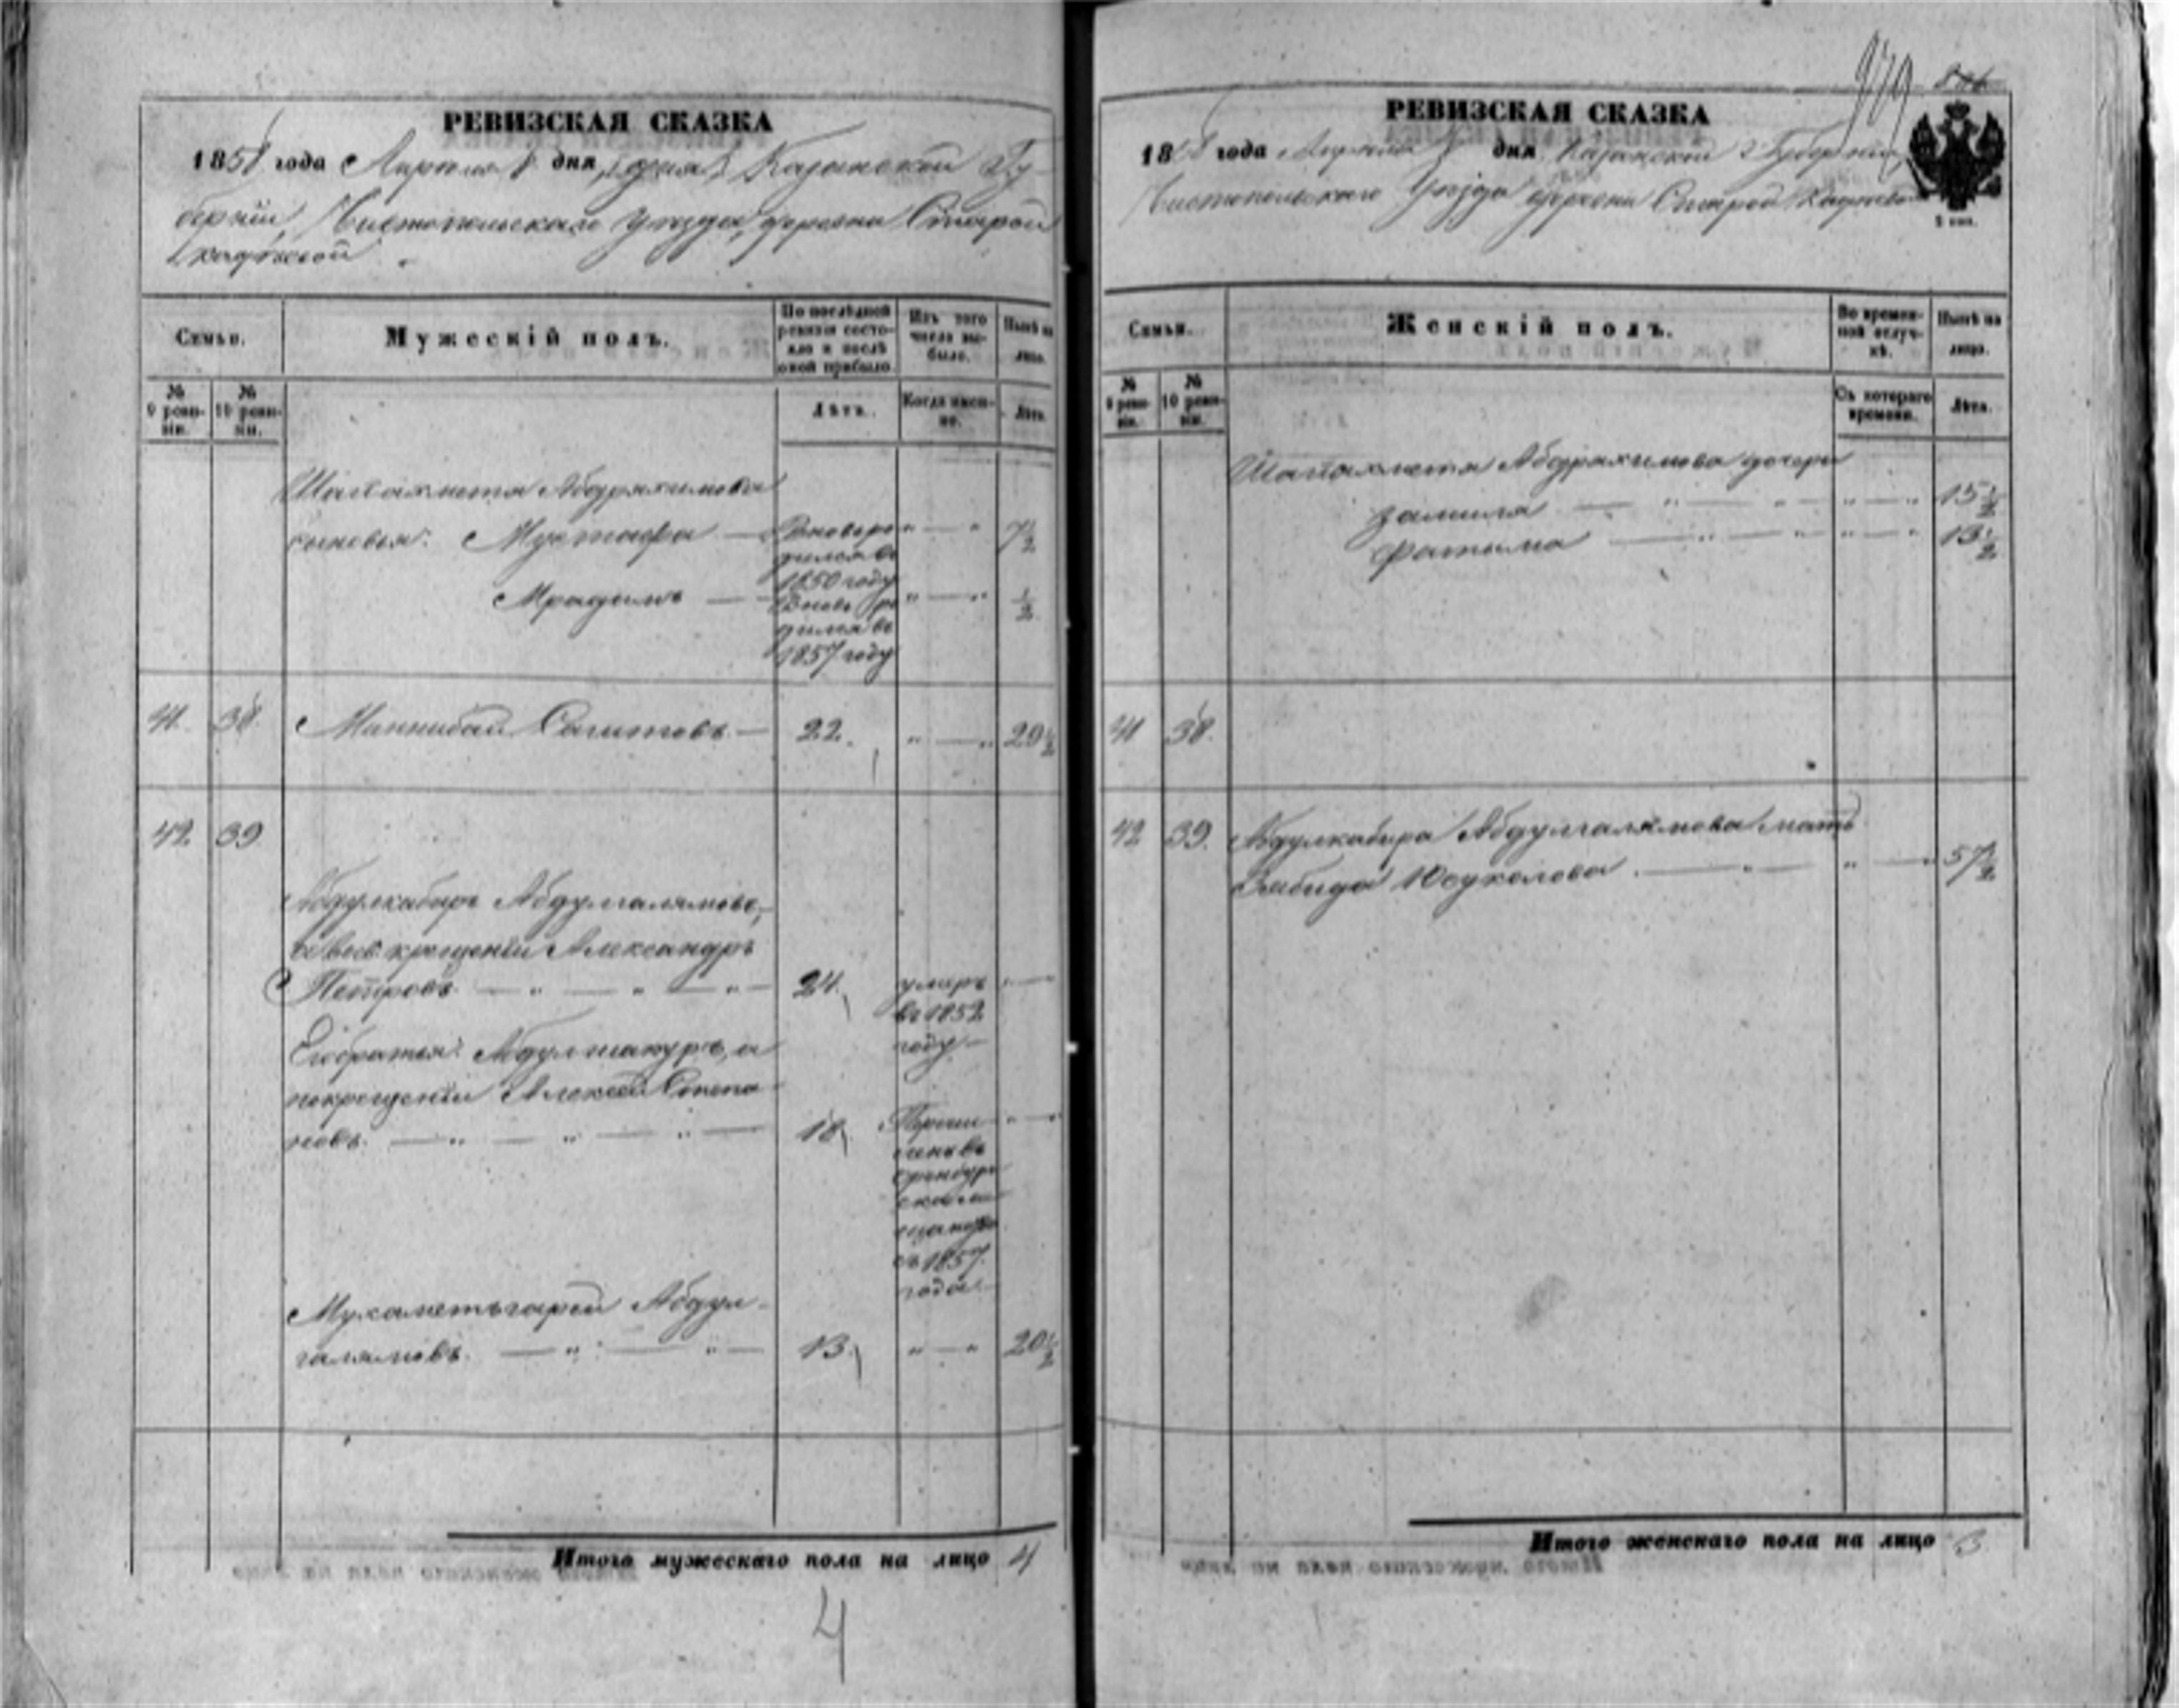 РЕВИЗСКАЯ СКАЗКА
1858 года Апреля 8 дня, Казанской Гу-
бернiи, Чистопольскаго уѣзда, деревни Старой
Кадѣевой
Семьи.
Мужескiй полъ.
По послѣдней ревизiи состо-яло и послѣ оной прибыло.
Изъ того числа вы-было.
Нынѣ на лицо.
№ 9 реви-зiи.
№ 10 реви-зiи.
Лѣтъ.
Когда имен-но.
Лѣта.
Абдряхимова
сыновья: Мустафа — Вновь ро- " — " 7½
дился въ
1850 году
Вновь ро " — " ½
дился въ
1857 году
41. 38. Сагитовъ — 22. " — " 29½
42. 39
Абдулкабиръ Абдулгалямовъ,
крещенiи Александръ
Петровъ — " — " — " — 24. умеръ " —
въ 1852
году —
Его братья: Абдулшакуръ, а
по крещенiи Алексей Степа-
новъ — " — " — " — 18. " — "
въ
Оренбург
1857
года —
Мухаметьгарей Абдул-
галямовъ. — " — " — 13. " — " 20½
Итого мужескаго пола на лицо 4
4
879
РЕВИЗСКАЯ СКАЗКА
1858 года Апреля 8 дня Казанской Губернiи,
Чистопольскаго уѣзда деревни Старой Кадѣевой
Семьи.
Женскiй полъ.
Во времен-ной отлуч-кѣ.
Нынѣ на лицо.
№ 9 реви-зiи.
№ 10 реви-зiи.
Съ котораго времени.
Лѣта.
Абдряхимова дочери
Залиля — " — " — " — " 15½
Фатима — " — " — " — " 13½
41 38.
42 39. Абдулкабира Абдулгалямова мать
Юсуколова — " — " — " 57½
Итого женскаго пола на лицо 3